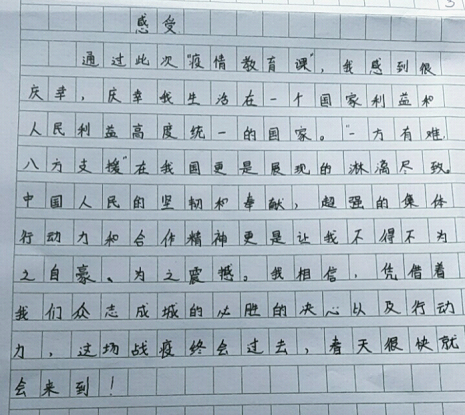 感受
通过此次“疫情教育课”，我感到很
庆幸，庆幸我生活在一个国家利益和
人民利益高度统一的国家。“一方有难，
八方支援”在我国更是展现的淋漓尽致。
中国人民的坚韧和奉献，超强的集体
行动力和合作精神更是让我不得不为
之自豪、为之震撼。我相信，凭借着
我们众志成城的必胜的决心以及行动
力，这场战疫终会过去，春天很快就
会来到！